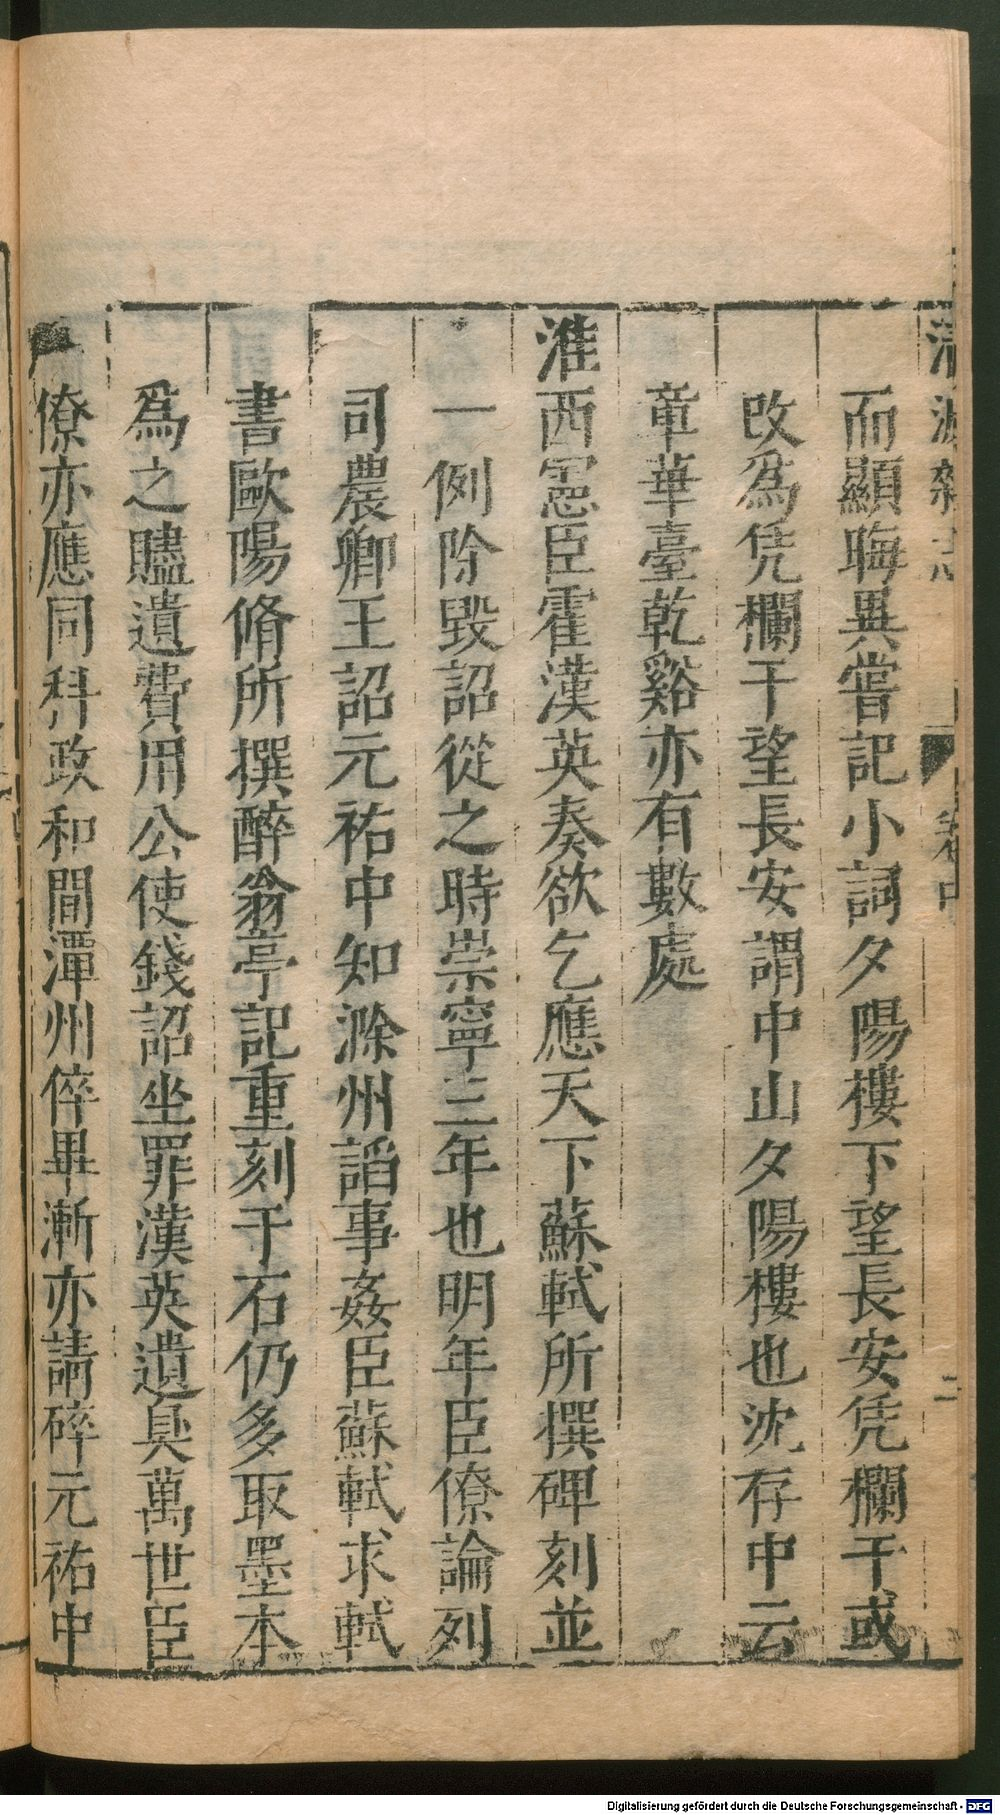 清波雜志 卷中 二
而顯晦異嘗記小詞夕陽樓下望長安凭欄干或
改爲凭欄干望長安謂中山夕陽樓也沈存中云
章華臺乾谿亦有數處
淮西憲臣霍漢英奏欲乞應天下蘇軾所撰碑刻並
一例除毀詔從之時崇寧三年也明年臣僚論列
司農卿王詔元祐中知滁州諂事姦臣蘇軾求軾
書歐陽脩所撰醉翁亭記重刻于石仍多取墨本
爲之贐遺費用公使錢詔坐罪漢英遺臭萬世臣
僚亦應同科政和間潭州倅畢漸亦請碎元祐中
Digitalisierung gefördert durch die Deutsche Forschungsgemeinschaft - DFG